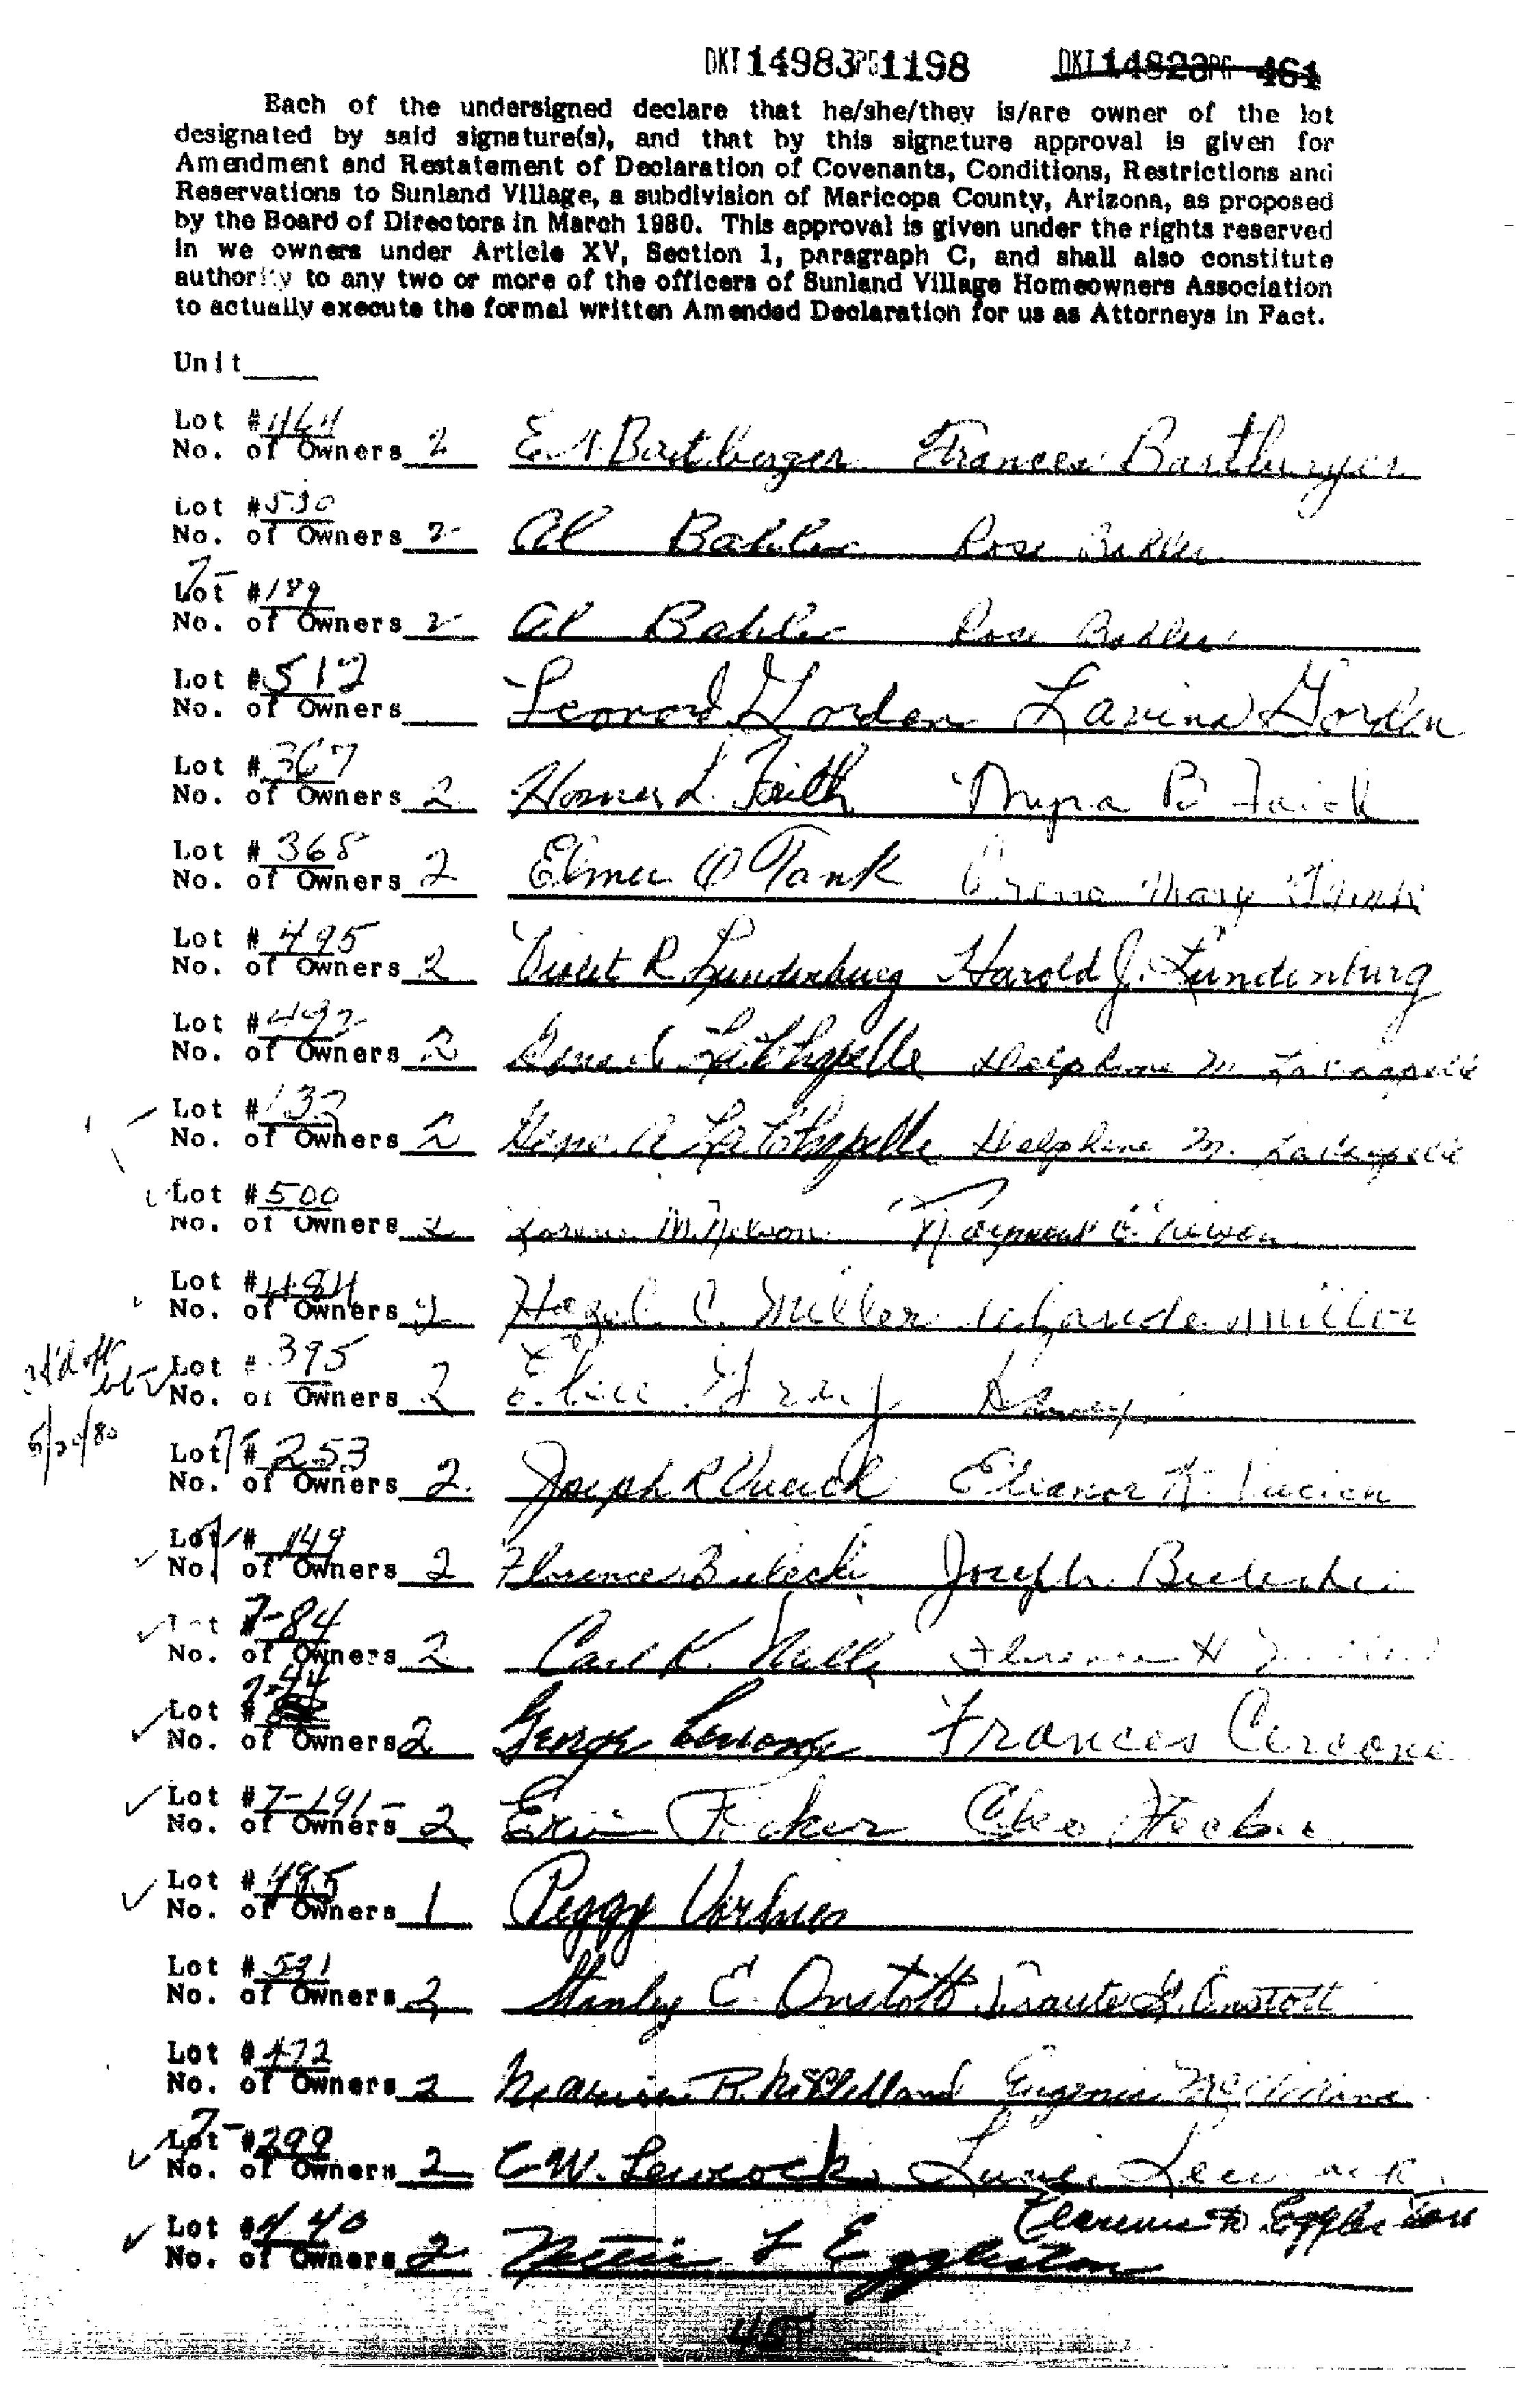 DKT 14983 PG 1198 DKT 14823 PG 461
Each of the undersigned declare that he/she/they is/are owner of the lot
designated by said signature(s), and that by this signature approval is given for
Amendment and Restatement of Declaration of Covenants, Conditions, Restrictions and
Reservations to Sunland Village, a subdivision of Maricopa County, Arizona, as proposed
by the Board of Directors in March 1980. This approval is given under the rights reserved
in we owners under Article XV, Section 1, paragraph C, and shall also constitute
authority to any two or more of the officers of Sunland Village Homeowners Association
to actually execute the formal written Amended Declaration for us as Attorneys in Fact.
Unit
Lot # 464
No. of Owners 2 Frances
Lot # 530
No. of Owners 2 Al Bahler Rose Bahler
7-
Lot # 189
No. of Owners 2 Al Bahler Rose Bahler
Lot # 512
No. of Owners Leonard Gorden Lavina Gorden
Lot # 367
No. of Owners 2 Homer L. Faith Myra B Faith
Lot # 368
No. of Owners 2 Elmer O Tank Mary Tank
Lot # 495
No. of Owners 2 Violet R. Lundenburg Harold J. Lundenburg
Lot # 492
No. of Owners 2 Gene A LaChapelle Delphine M. LaChapelle
Lot # 132
No. of Owners 2 Gene A LaChapelle Delphine M. LaChapelle
Lot # 500
No. of Owners 2 M. Nelson Raymond E. Nelson
Lot # 484
No. of Owners 2 Hazel C. Miller Claude Miller
Lot # 395
No. of Owners 2 Gray
5/20/80
Lot 7 # 253
No. of Owners 2 Joseph R Vucich Eleanor K. Vucich
Lot 7 # 149
No. of Owners 2 Florence Bielecki Joseph Bielecki
Lot # 7-84
No. of Owners 2 Carl K. Florence H
7-44
Lot #
No. of Owners 2 George Cercone Frances Cercone
Lot # 7-191
No. of Owners 2 Ficker Cleo Ficker
Lot # 485
No. of Owners 1 Peggy
Lot # 531
No. of Owners 2 Stanley E. Onstott Traute G. Onstott
Lot # 472
No. of Owners 2 R. McClelland Eugenia McClelland
7-
Lot # 299
No. of Owners 2 C W. Lewcock
Clarence D. Eggleston
Lot # 440
No. of Owners 2 Nettie L Eggleston
45